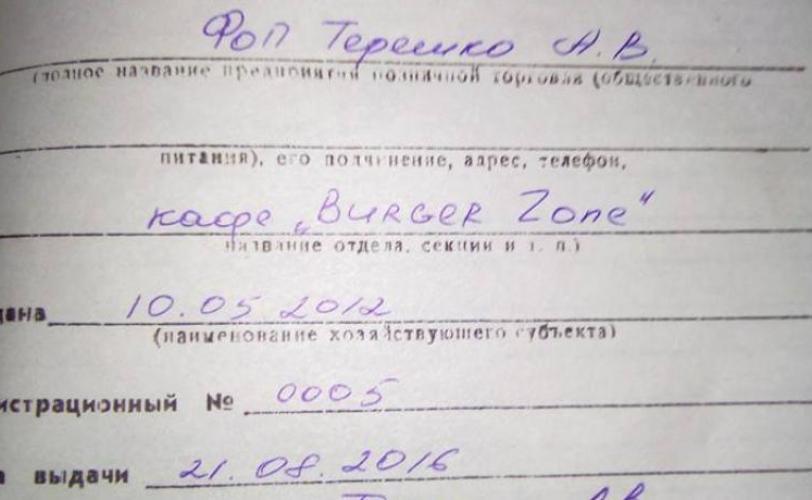 Фоп Терешко А.В.
(полное название предприятия розничной торговли (общественного
питания), его подчинение, адрес, телефон,
кафе „BURGER Zone“
название отдела, секции и т. п.)
дана 10.05 2012
(наименование хозяйствующего субъекта)
истрационный № 0005
а выдачи 21.08.2016